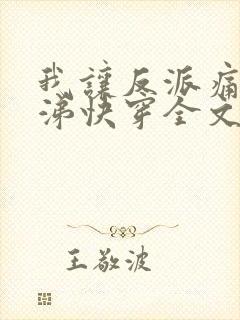 我讓反派痛
涕快穿全文
王敬波